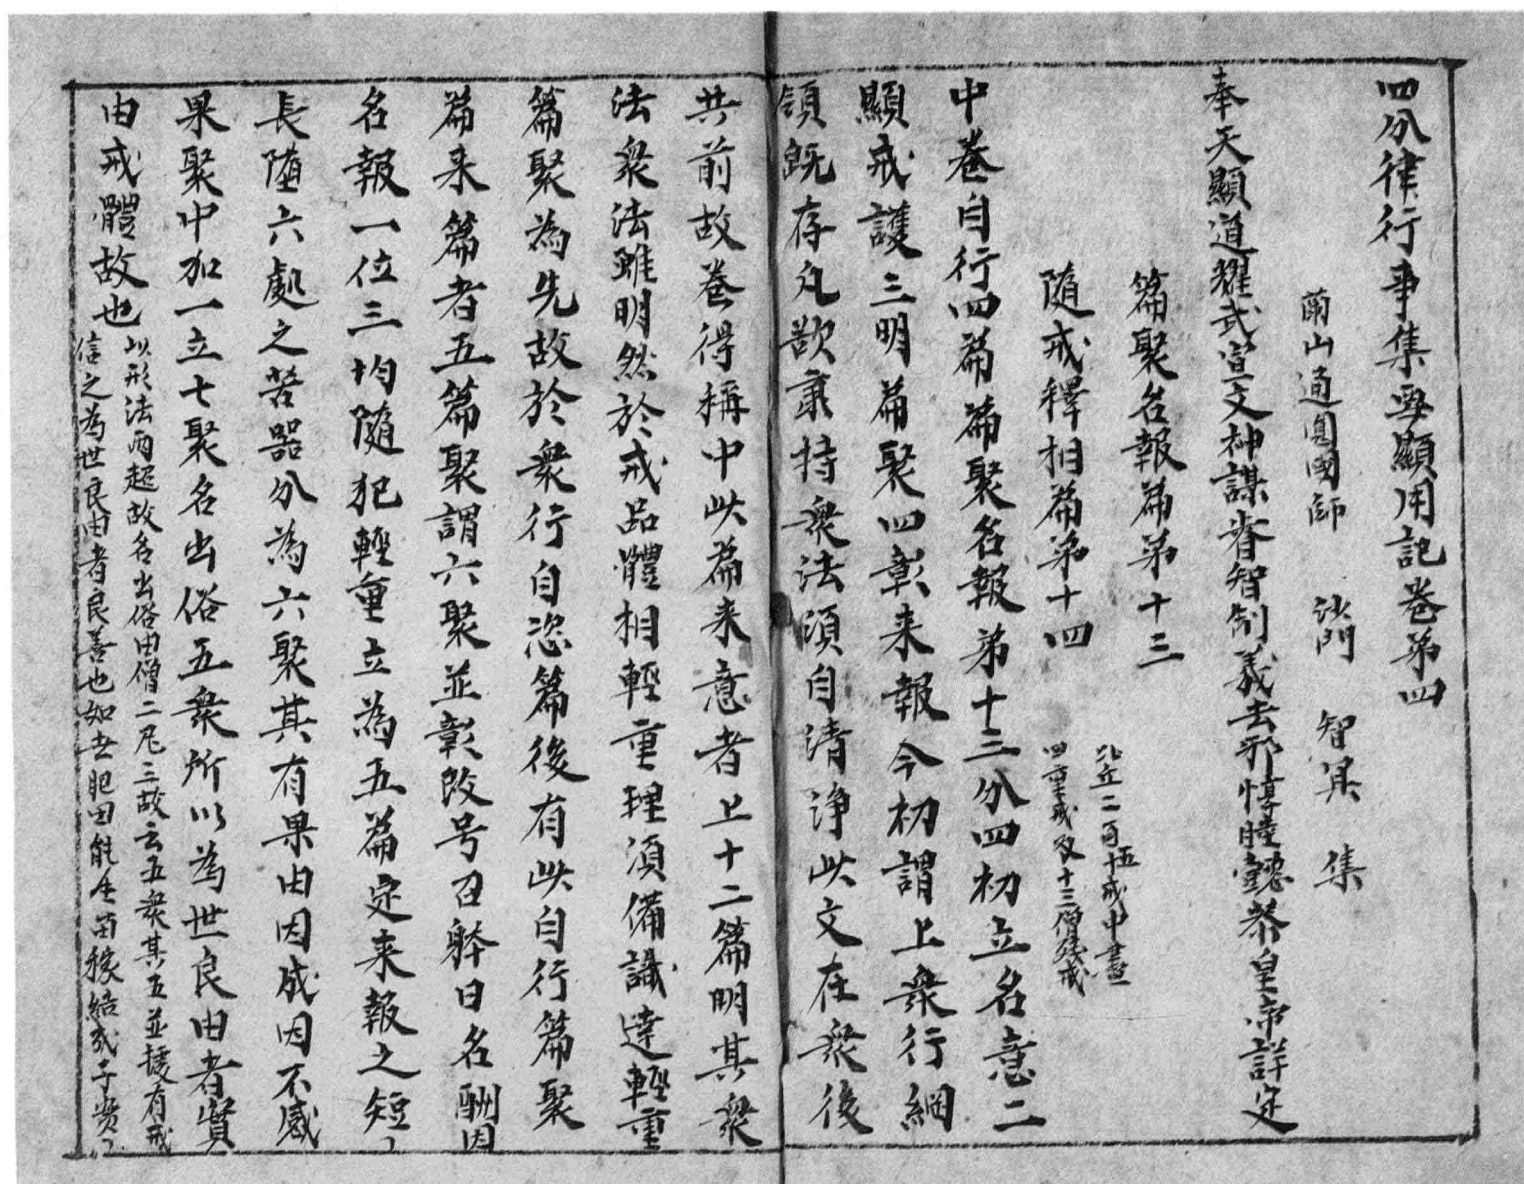 四分律行事集要顯用記卷苐四
蘭山通圓國師　沙門　智冥　集
奉天顯道耀武宣文神謀睿智制義去邪惇睦懿恭皇帝詳定
篇聚名報篇苐十三
隨戒釋相篇苐十四
北丘二百五十戒中盡
四重戒及十三僧殘戒
中卷自行四篇篇聚名報苐十三分四初立名意二
顯戒護三明篇聚四彰来報今初謂上衆行綱
領既存凡欲秉持衆法須自清淨此文在衆後
共前故卷得稱中此篇来意者上十二篇明其衆
法衆法雖明然於戒品體相輕重理湏備識達輕重
篇聚為先故於衆行自恣篇後有此自行篇聚
篇来篇者五篇聚謂六聚並彰改号召躰曰名酬因
名報一位三均隨犯輕重立為五篇定来報之短
長墮六處之苦器分為六聚其有果由因成因不感
果聚中加一立七聚名出俗五衆所以為世良由者實
由戒體故也
以形法兩超故名出俗由僧二尼三故云五衆其五並擾有戒
信之為世良由者良善也如世肥田能生苗稼結成子實